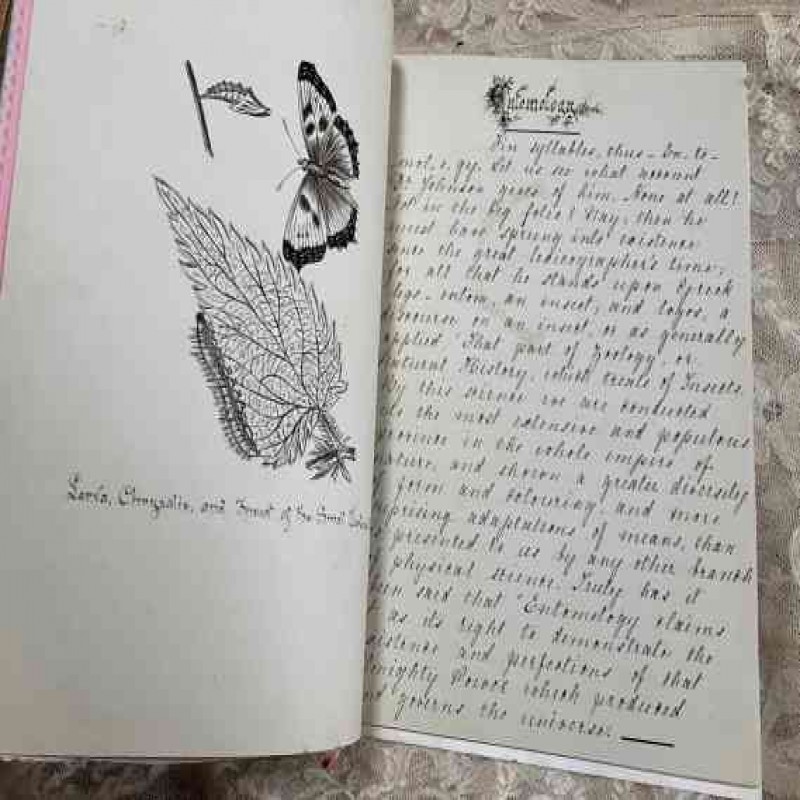 Larva, Chrysalis, and Front of the Small
Entomology
In syllables, thus – En-to-
mol, o, gy. Let us see what account
Dr Johnson gives of him. None at all!
Not in the big folio! Nay, then he
must have sprung into existence
since the great lexicographer's time;
for all that he stands upon Greek
legs – entom, an insect, and logos, a
discourse on an insect, or as generally
applied "That part of Zoology, or
Natural History, which treats of Insects.
By this science we are conducted
into the most extensive and populous
province in the whole empire of
nature, and shown a greater diversity
form and colouring, and more
prising adaptations of means, than
presented to us by any other branch
physical science. Truly has it
een said that "Entomology claims
as its right to demonstrate the
istence and perfections of that
lmighty Power which produced
nd governs the universe.